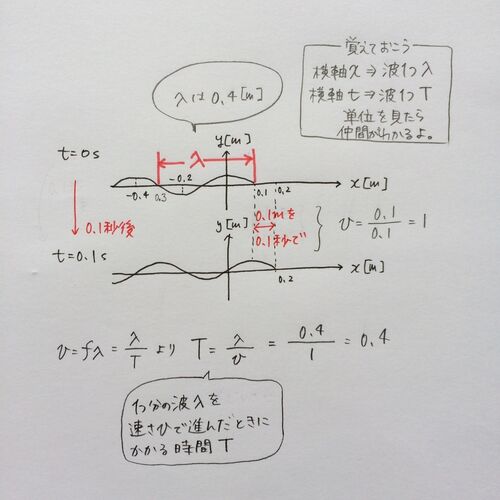 覚えておこう
横軸x⇒波1つλ
横軸t⇒波1つT
単位を見たら
仲間がわかるよ。
λは0.4[m]
y[m]
t=0s
λ
-0.4
0.3
-0.2
0.1
0.2
x[m]
0.1秒後
y[m]
0.1mを
0.1秒で
v=0.1/0.1=1
t=0.1s
0.2
x[m]
v=fλ=λ/T より T=λ/v=0.4/1=0.4
1つ分の波λを
速さvで進んだときに
かかる時間T